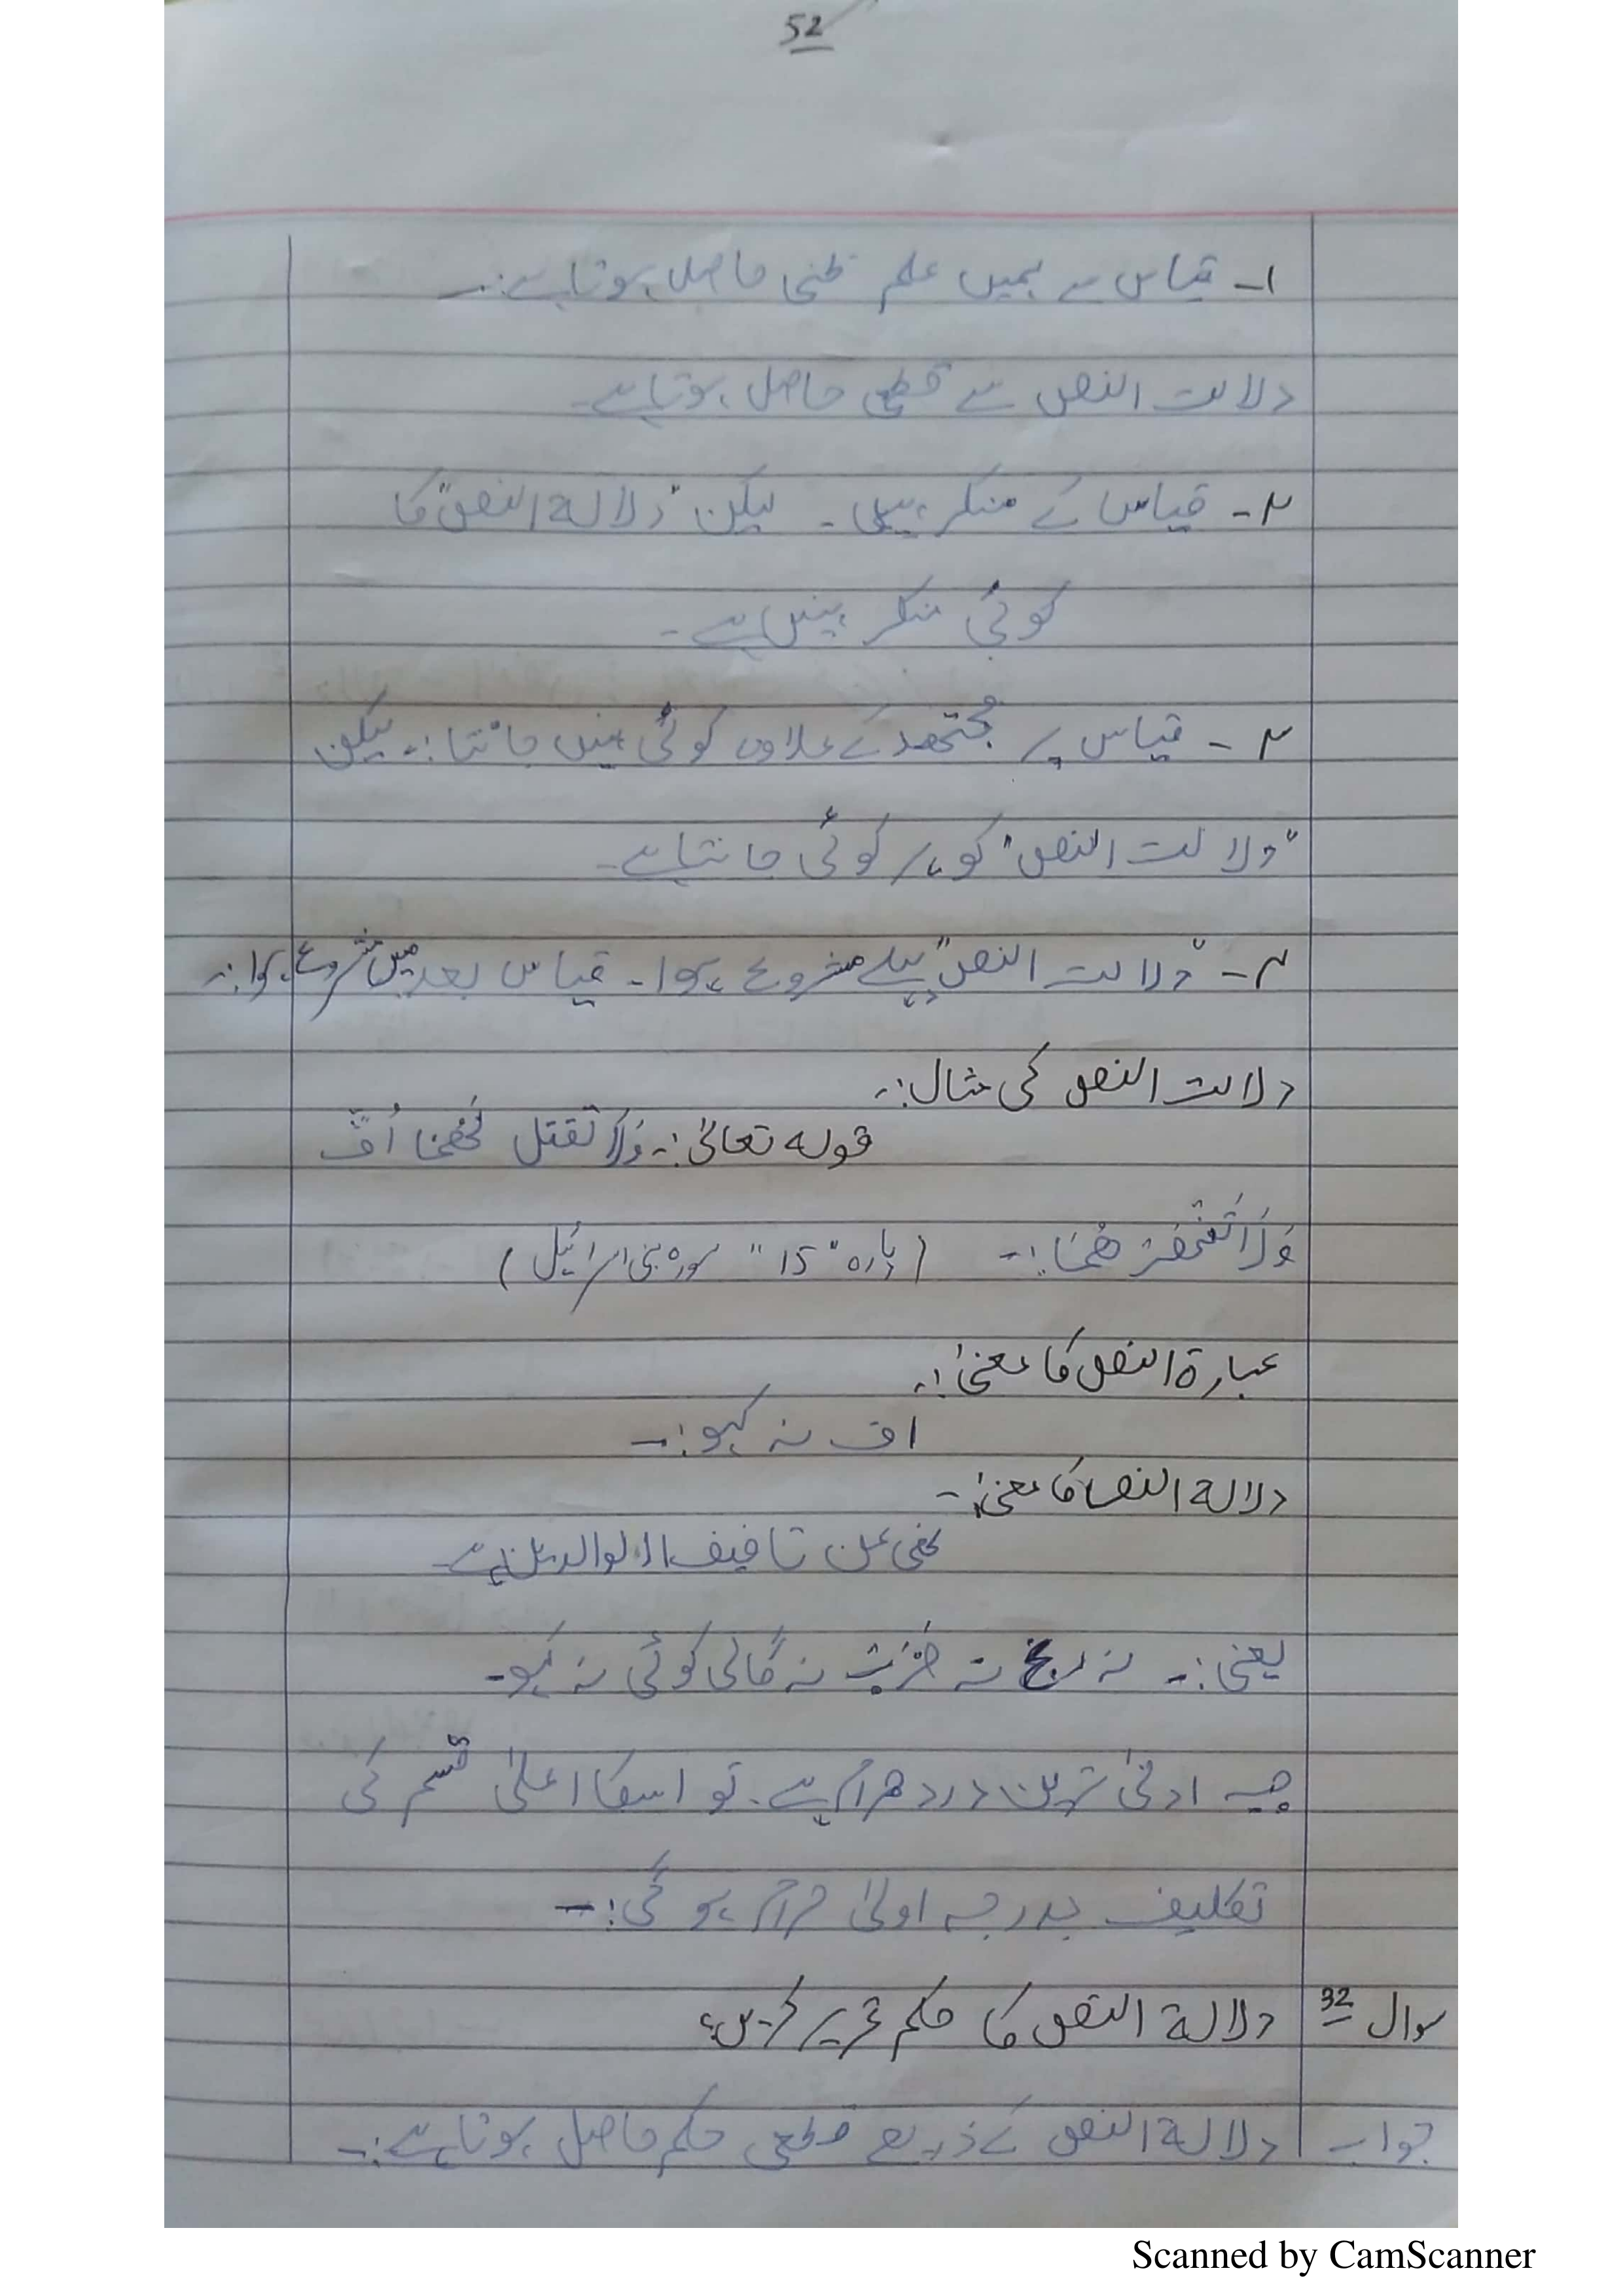 52
۱- قیاس سے ہمیں علم ظنی حاصل ہوتا ہے:۔
دلالت النص سے قطعی حاصل ہوتا ہے۔
۲- قیاس کے منکر ہیں۔ لیکن "دلالة النص" کا
کوئی منکر نہیں ہے۔
۳- قیاس پر مجتھد کے علاوہ کوئی نہیں جانتا:۔ لیکن
"دلالت النص" کو ہر کوئی جانتا ہے۔
۴- "دلالت النص" پہلے مشروع ہوا۔ قیاس بعد میں مشروع ہوا:۔
دلالت النص کی مثال:۔
قولہ تعالیٰ:۔ وَلَا تقتل لھما اُفٍّ
وَلَا تنھرھُمَا:۔ (پارہ "15" سورہ بنی اسرائیل)
عبارة النص کا معنیٰ:۔
اف نہ کہو:۔
دلالة النص کا معنیٰ:۔
نھی عن تافیف الوالدین ہے۔
یعنی:۔ نہ نہ ضرب نہ گالی کوئی نہ کہو۔
جب ادنیٰ ترین درد حرام ہے۔ تو اسکا اعلیٰ قسم کی
تکلیف بدرجہ اولیٰ حرام ہو گی:۔
سوال 32 دلالة النص کا حکم تحریر کریں؟
جواب دلالة النص کے ذریعے قطعی حکم حاصل ہوتا ہے:۔
Scanned by CamScanner